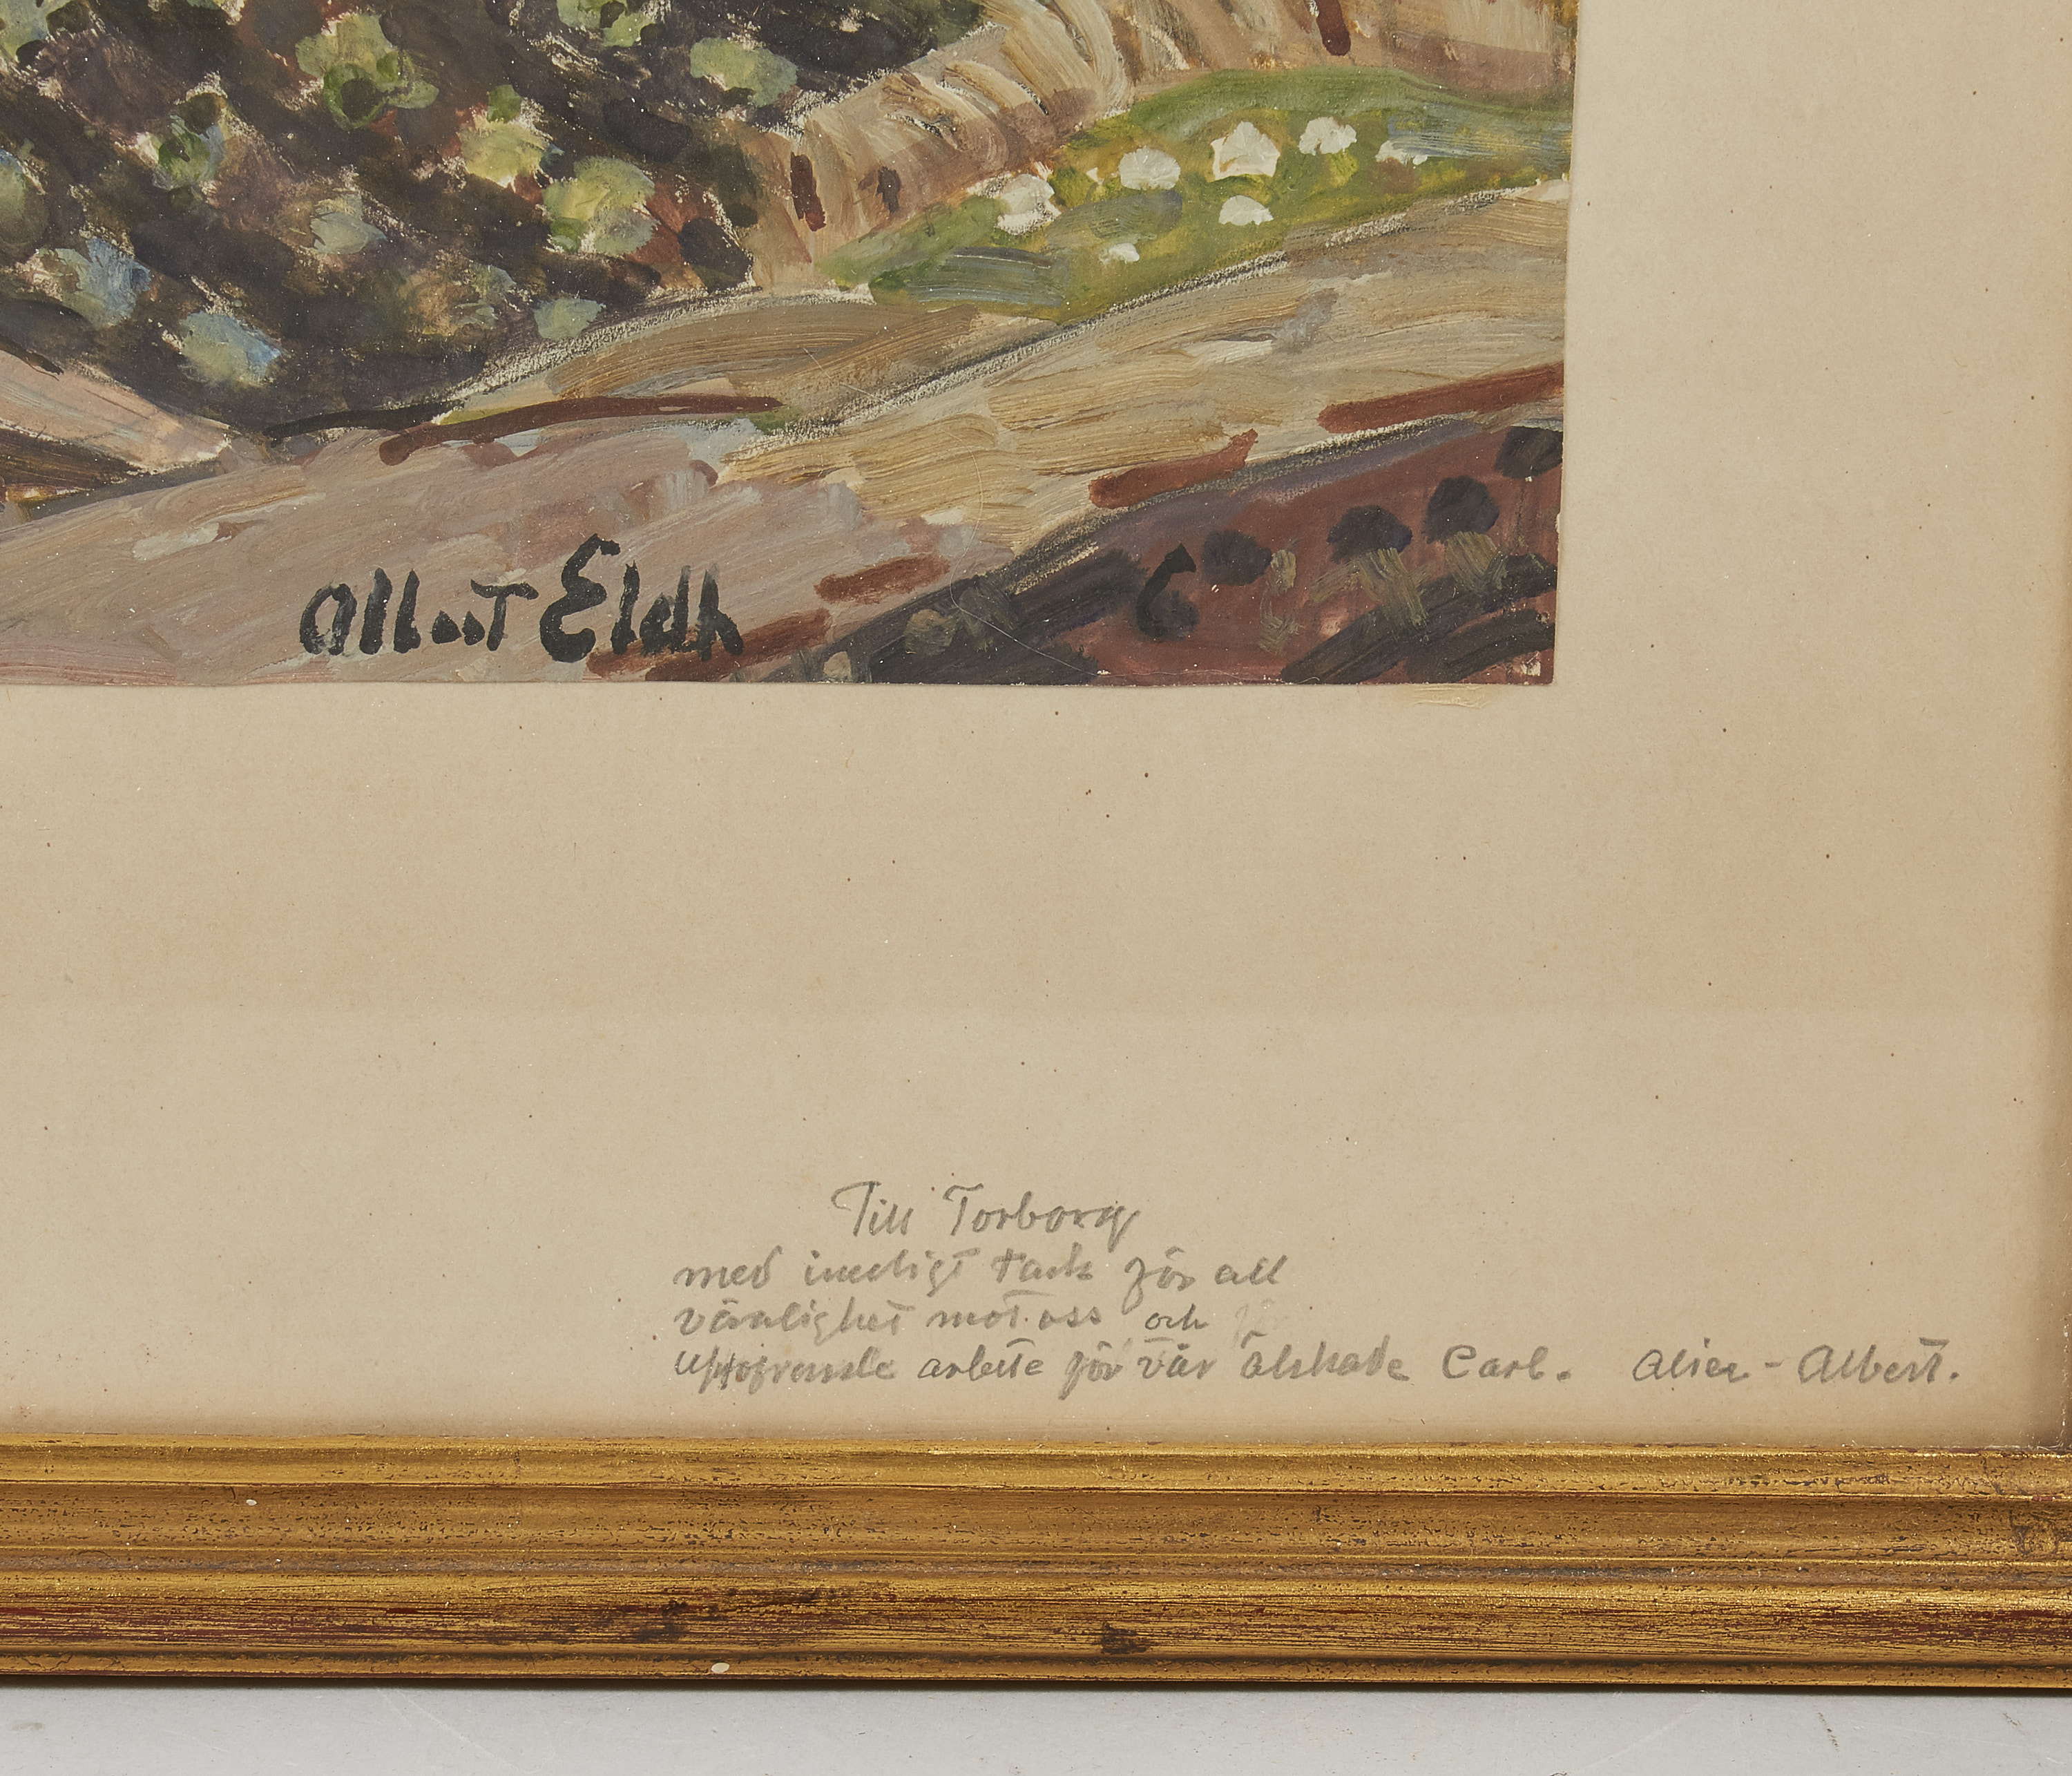 Albert Eldh
Till Torborg
med innerligt tack för all
vänlighet mot oss och
uppofrande arbete för vår älskade Carl. Alice - Albert.